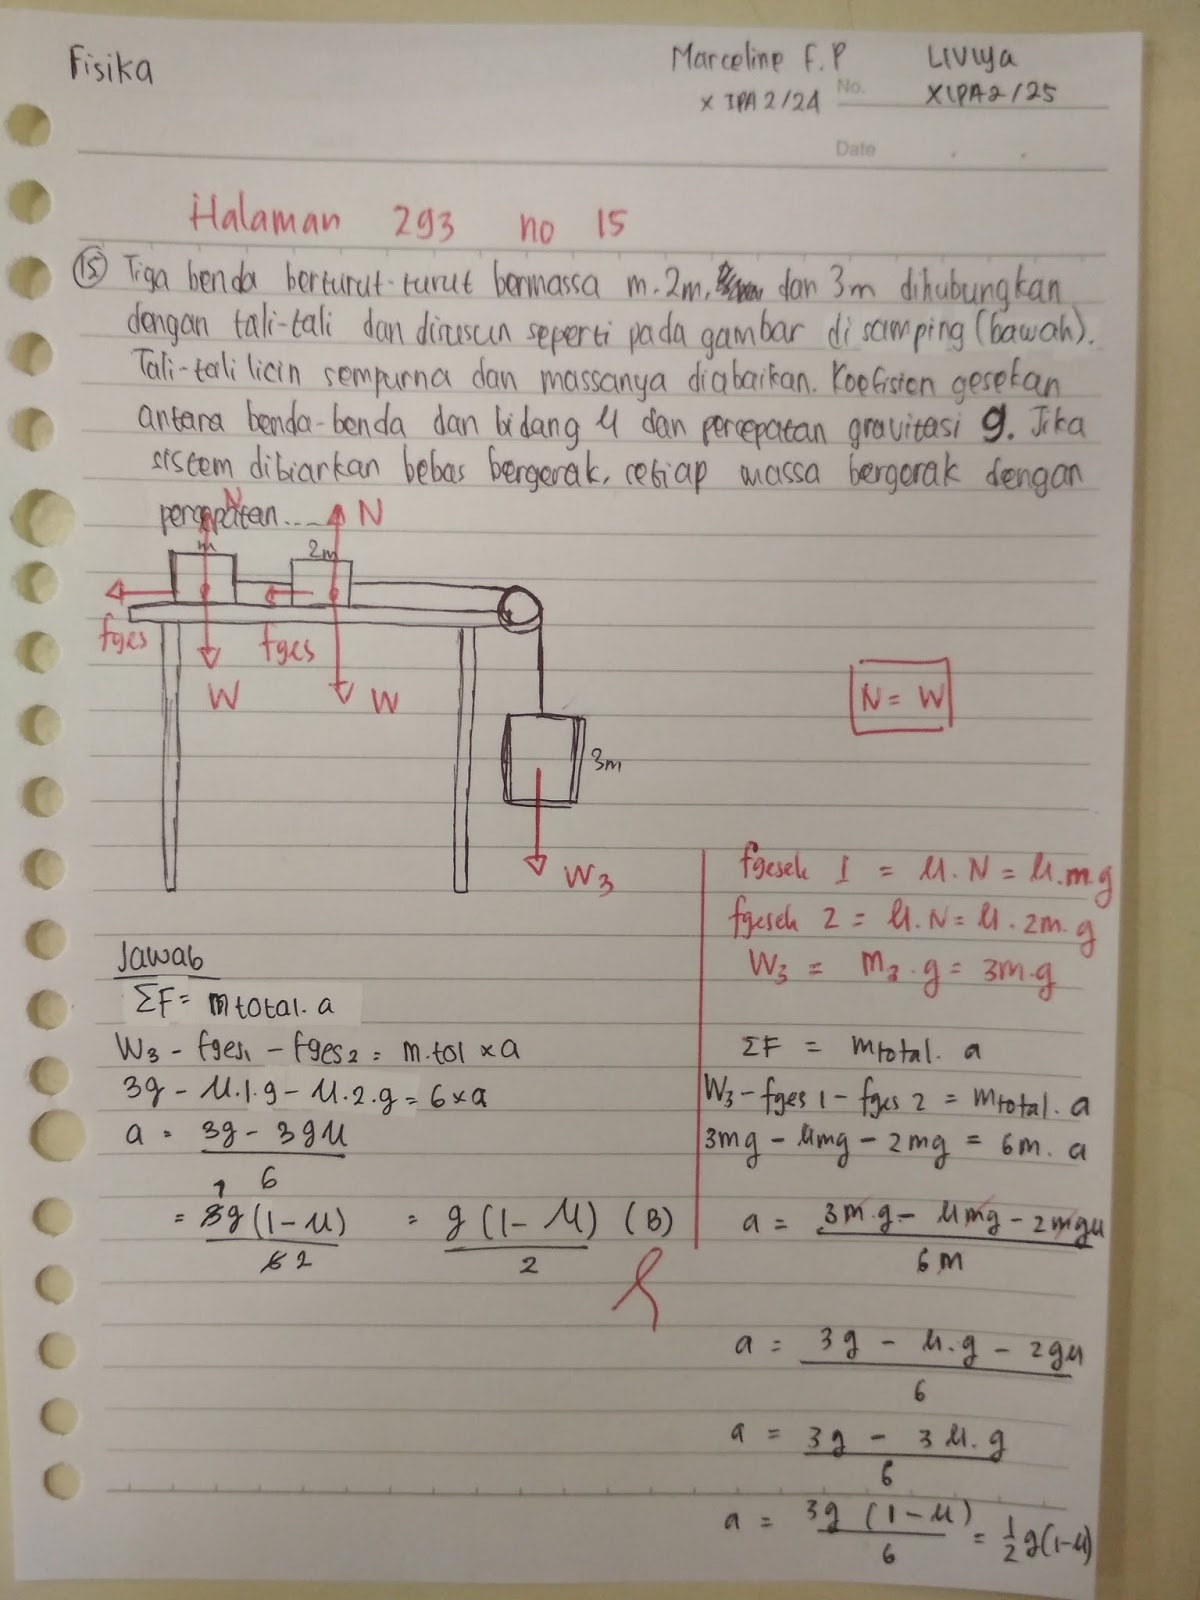 Fisika
Marceline F.P
X IPA 2/24
Liviya
X IPA 2/25
No.
Date
Halaman 293 no 15
15 Tiga benda berturut-turut bermassa m. 2m, dan 3m dihubungkan
dengan tali-tali dan disusun seperti pada gambar di samping (bawah).
Tali-tali licin sempurna dan massanya diabaikan. Koefisien gesekan
antara benda-benda dan bidang μ dan percepatan gravitasi g. Jika
sistem dibiarkan bebas bergerak, setiap massa bergerak dengan
percepatan....
N
N
m
2m
fges
fges
W
W
N = W
3m
W3
fgesek 1 = μ. N = μ.m.g
fgesek 2 = μ. N = μ. 2m. g
W3 = m3 . g = 3m.g
Jawab
ΣF = m total. a
W3 - fges1 - fges2 = m.tot x a
3g - μ.1.g - μ.2.g = 6 x a
a = 3g - 3gμ
6
1
= 3g (1 - μ) = g (1 - μ) (B)
6 2 2
ΣF = mtotal. a
W3 - fges 1 - fges 2 = mtotal. a
3mg - μmg - 2mg = 6m. a
a = 3m.g - μmg - 2mgμ
6m
a = 3g - μ.g - 2gμ
6
a = 3g - 3μ.g
6
a = 3g (1 - μ) = 1/2 g(1-μ)
6